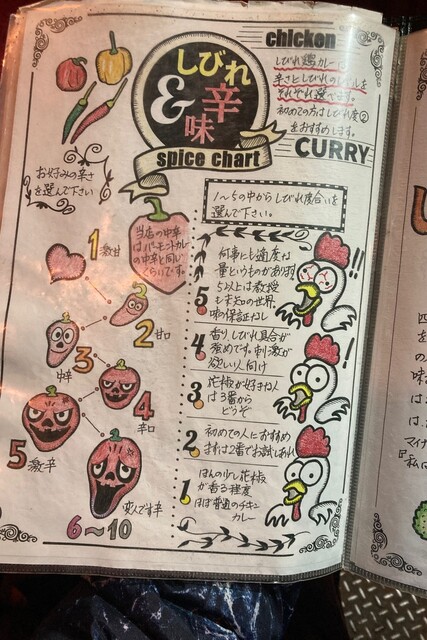 しびれ
&
辛味
spice chart
chicken
CURRY
しびれ鶏カレー
辛さとしびれのレベルを
それぞれ選べます。
初めての方はしびれ度②
をおすすめします。
お好みの辛さ
を選んで下さい
1〜5の中からしびれ度合いを
選んで下さい。
当店の中辛
はバーモントカレー
の中辛と同じ
くらいです。
1 激甘
2 甘口
3
中辛
4
辛口
5 激辛
変人です辛
6〜10
何事にも適度な
量というものがあります
5以上は教授
も未知の世界
味の保証なし
5
4 香り、しびれ具合が
強めです。刺激が
欲しい人向け
3 花椒が好きな人
は3番から
どうぞ
2 初めての人におすすめ
まずは2番でお試しあれ
1 ほんの少し花椒
が香る程度
ほぼ普通のチキン
カレー
!!
!